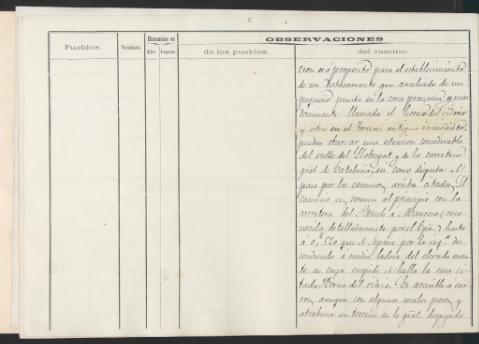 2.
Pueblos.
Vecindario.
Distancias en
Kilo. Leguas
OBSERVACIONES
de los pueblos.
del camino.
cion es á proposito para el establecimiento
de un destacamento que auxiliado de un
pequeño puesto en la casa procsima y mas
dominante llamada el
y otro en el antiguo inmediato,
pueden observar una estension considerable
del valle del Llobregat y de la carretera
gral de Cataluña, asi como disputar el
paso por los caminos arriba citados. El
camino es comun al principio con la
carretera del á Manresa, reco-
nocida detalladamente por el hasta
que se separa por la izqda des-
cendiendo á media ladera del elevado mon-
te en cuya cuspide se halla la casa ci-
tada Es accesible á car-
ros, aunque con algunos malos pasos, y
atraviesa un terreno en lo gral. despejado